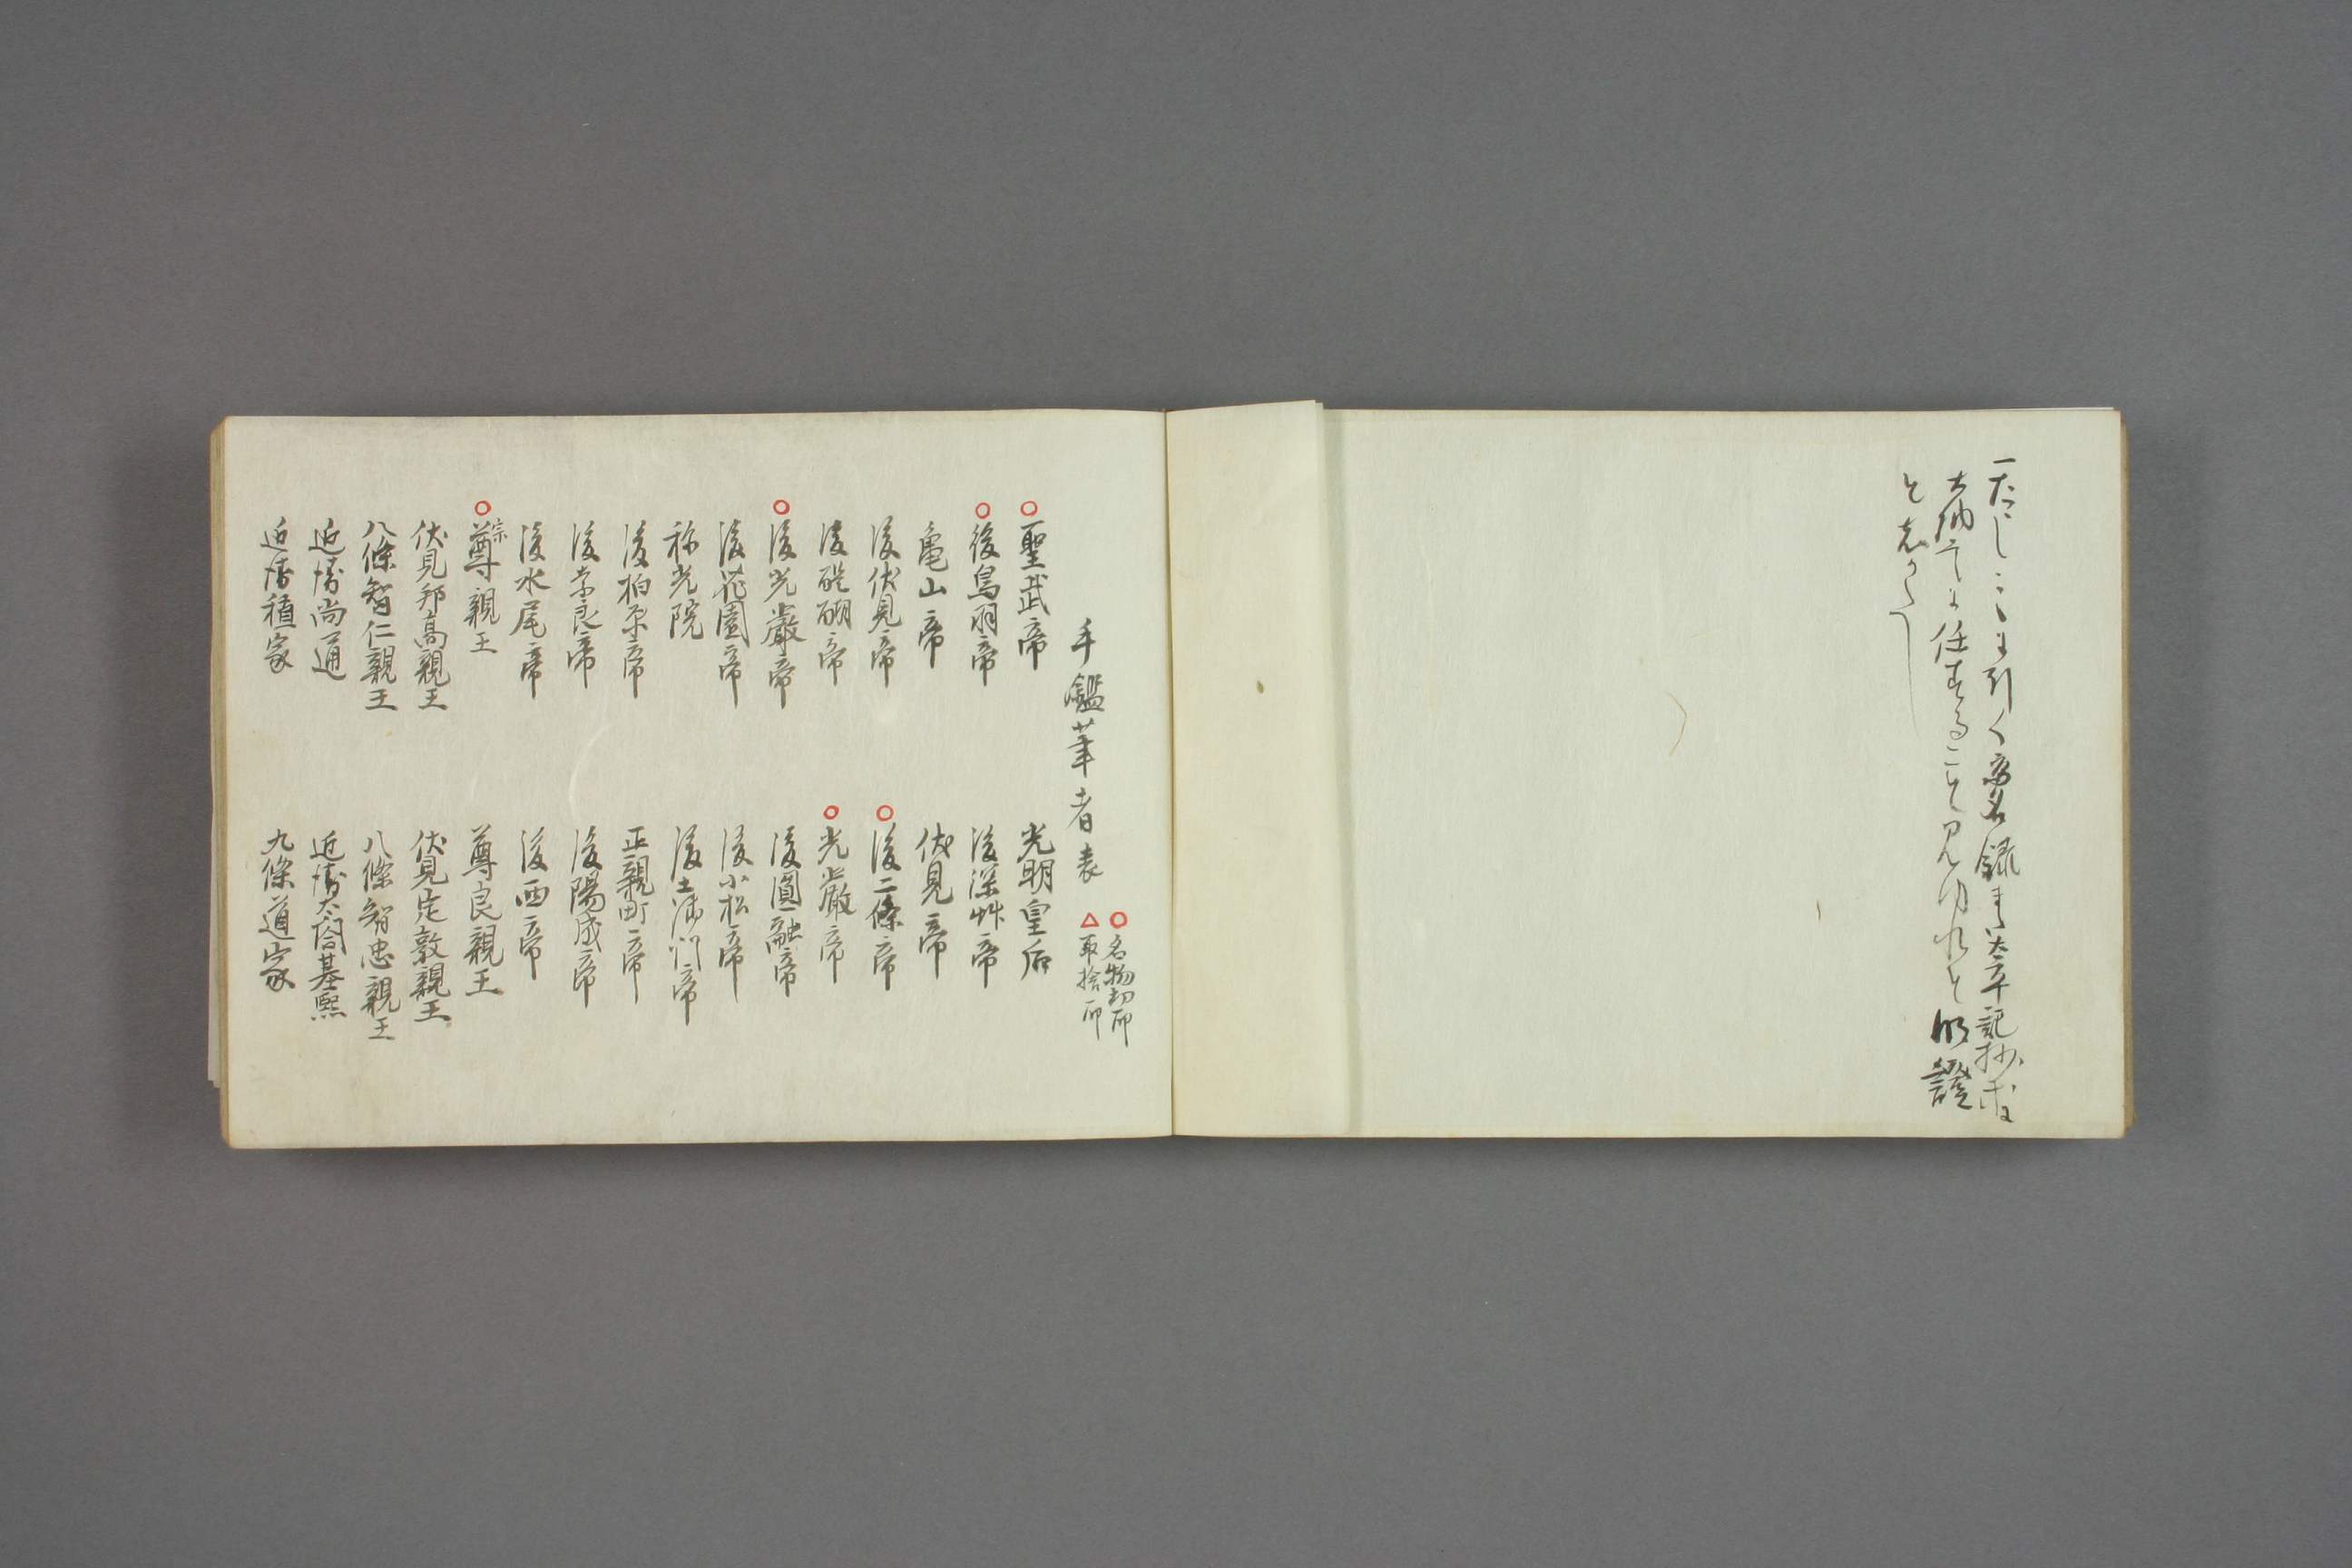 一たゝしこゝに引く家名録は太平記抄に
任すること見ゆれと明證
となしかたし
手鑑筆者表
○名物切印
△取捨印
○聖武帝 光明皇后
○後鳥羽帝 後深草帝
亀山帝 伏見帝
後伏見帝 ○後二條帝
後醍醐帝 ○光嚴帝
○後光嚴帝 後圓融帝
後花園帝 後小松帝
称光院 後土御門帝
後柏原帝 正親町帝
後奈良帝 後陽成帝
後水尾帝 後西帝
○宗尊親王 尊良親王
伏見邦高親王 伏見定敦親王
八條智仁親王 八條智忠親王
近衛尚通 近衛太閤基熙
近衛稙家 九條道家